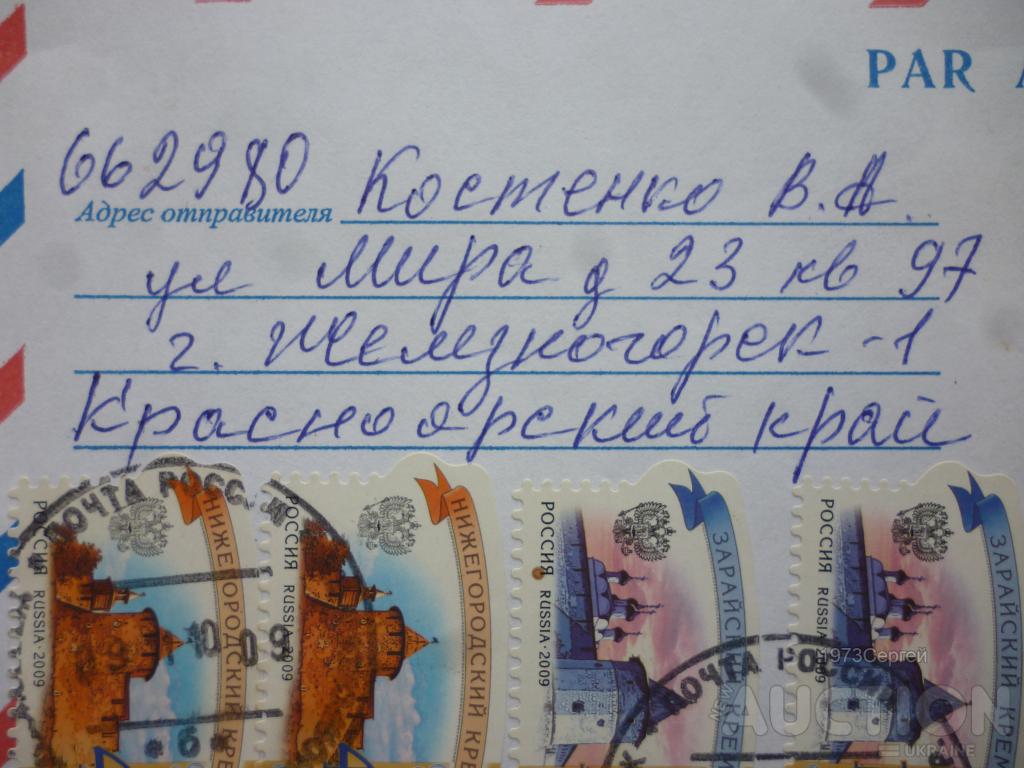 PAR
662980 Костенко В.А.
Адрес отправителя
ул Мира д 23 кв 97
г. Железногорск-1
Красноярский край
ПОЧТА РОССИИ
РОССИЯ RUSSIA·2009
НИЖЕГОРОДСКИЙ КРЕ
РОССИЯ RUSSIA·2009
НИЖЕГОРОДСКИЙ КРЕ
РОССИЯ RUSSIA·2009
ЗАРАЙСКИЙ КРЕМ
РОССИЯ RUSSIA·2009
ЗАРАЙСКИЙ КРЕМ
09
* 6 *
ПОЧТА РОССИИ
1973Сергей
AUCTION
UKRAINE